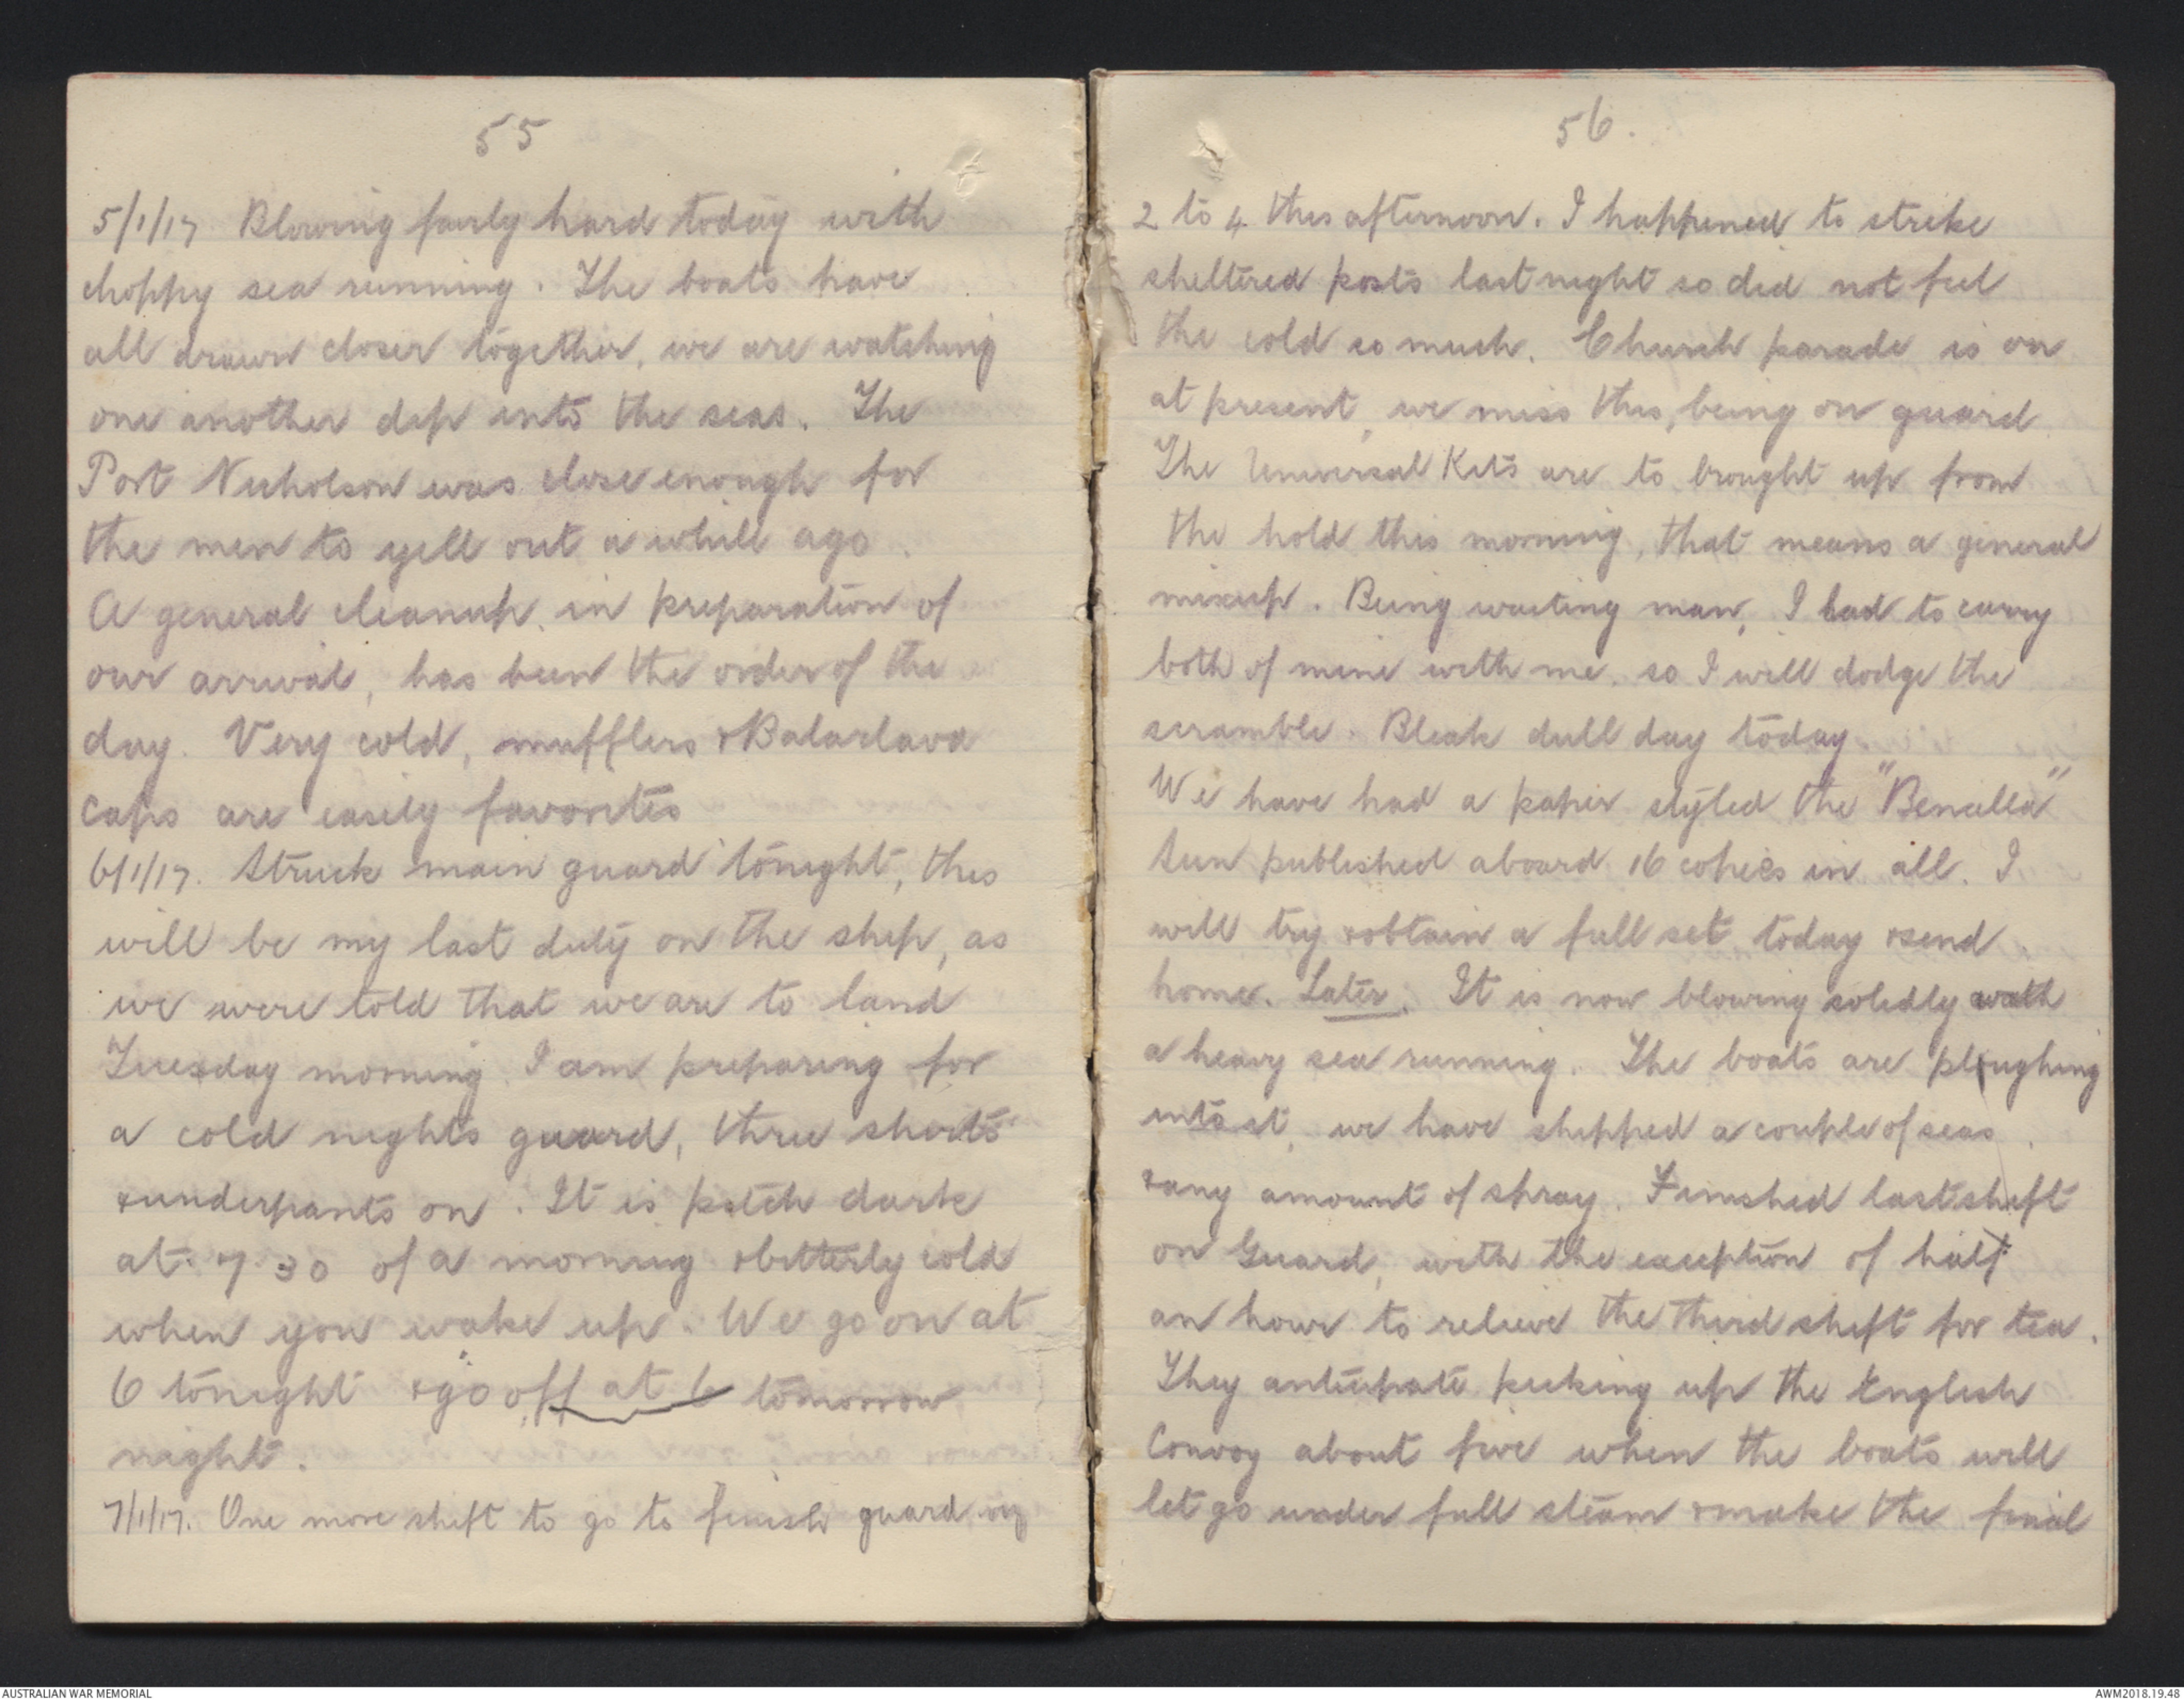 55
5/1/17 Blowing fairly hard today with
choppy sea running. The boats have
all drawn closer together, we are watching
one another dip into the seas. The
Port Nicholson was close enough for
the men to yell out a while ago.
A general cleanup, in preparation of
our arrival, has been the order of the
day. Very cold, mufflers & Balaclava
caps are easily favorites
6/1/17. Struck main guard tonight, this
will be my last duty on the ship, as
we were told that we are to land
Tuesday morning. I am preparing for
a cold nights guard, three shirts
& underpants on. It is pitch dark
at 7 30 of a morning & bitterly cold
when you wake up. We go on at
6 tonight & go off at 6 tomorrow
night.
7/1/17. One more shift to go to finish guard
56.
2 to 4 this afternoon. I happened to strike
sheltered posts last night so did not feel
the cold so much. Church parade is on
at present, we miss this, being on guard
The Universal Kits are to brought up from
the hold this morning, that means a general
mixup. Being waiting man, I had to carry
both of mine with me. so I will dodge the
scramble. Bleak dull day today.
We have had a paper styled the "Benalla"
Sun published aboard 16 copies in all. I
will try & obtain a full set today & send
home. Later. It is now blowing solidly with
a heavy sea running. The boats are ploughing
into it, we have shipped a couple of seas
& any amount of spray. Finished last shift
on Guard, with the exception of half
an hour to relieve the third shift for tea.
They anticipate picking up the English
Convoy about five when the boats will
let go under full steam & make the final
AUSTRALIAN WAR MEMORIAL
AWM2018.19.48